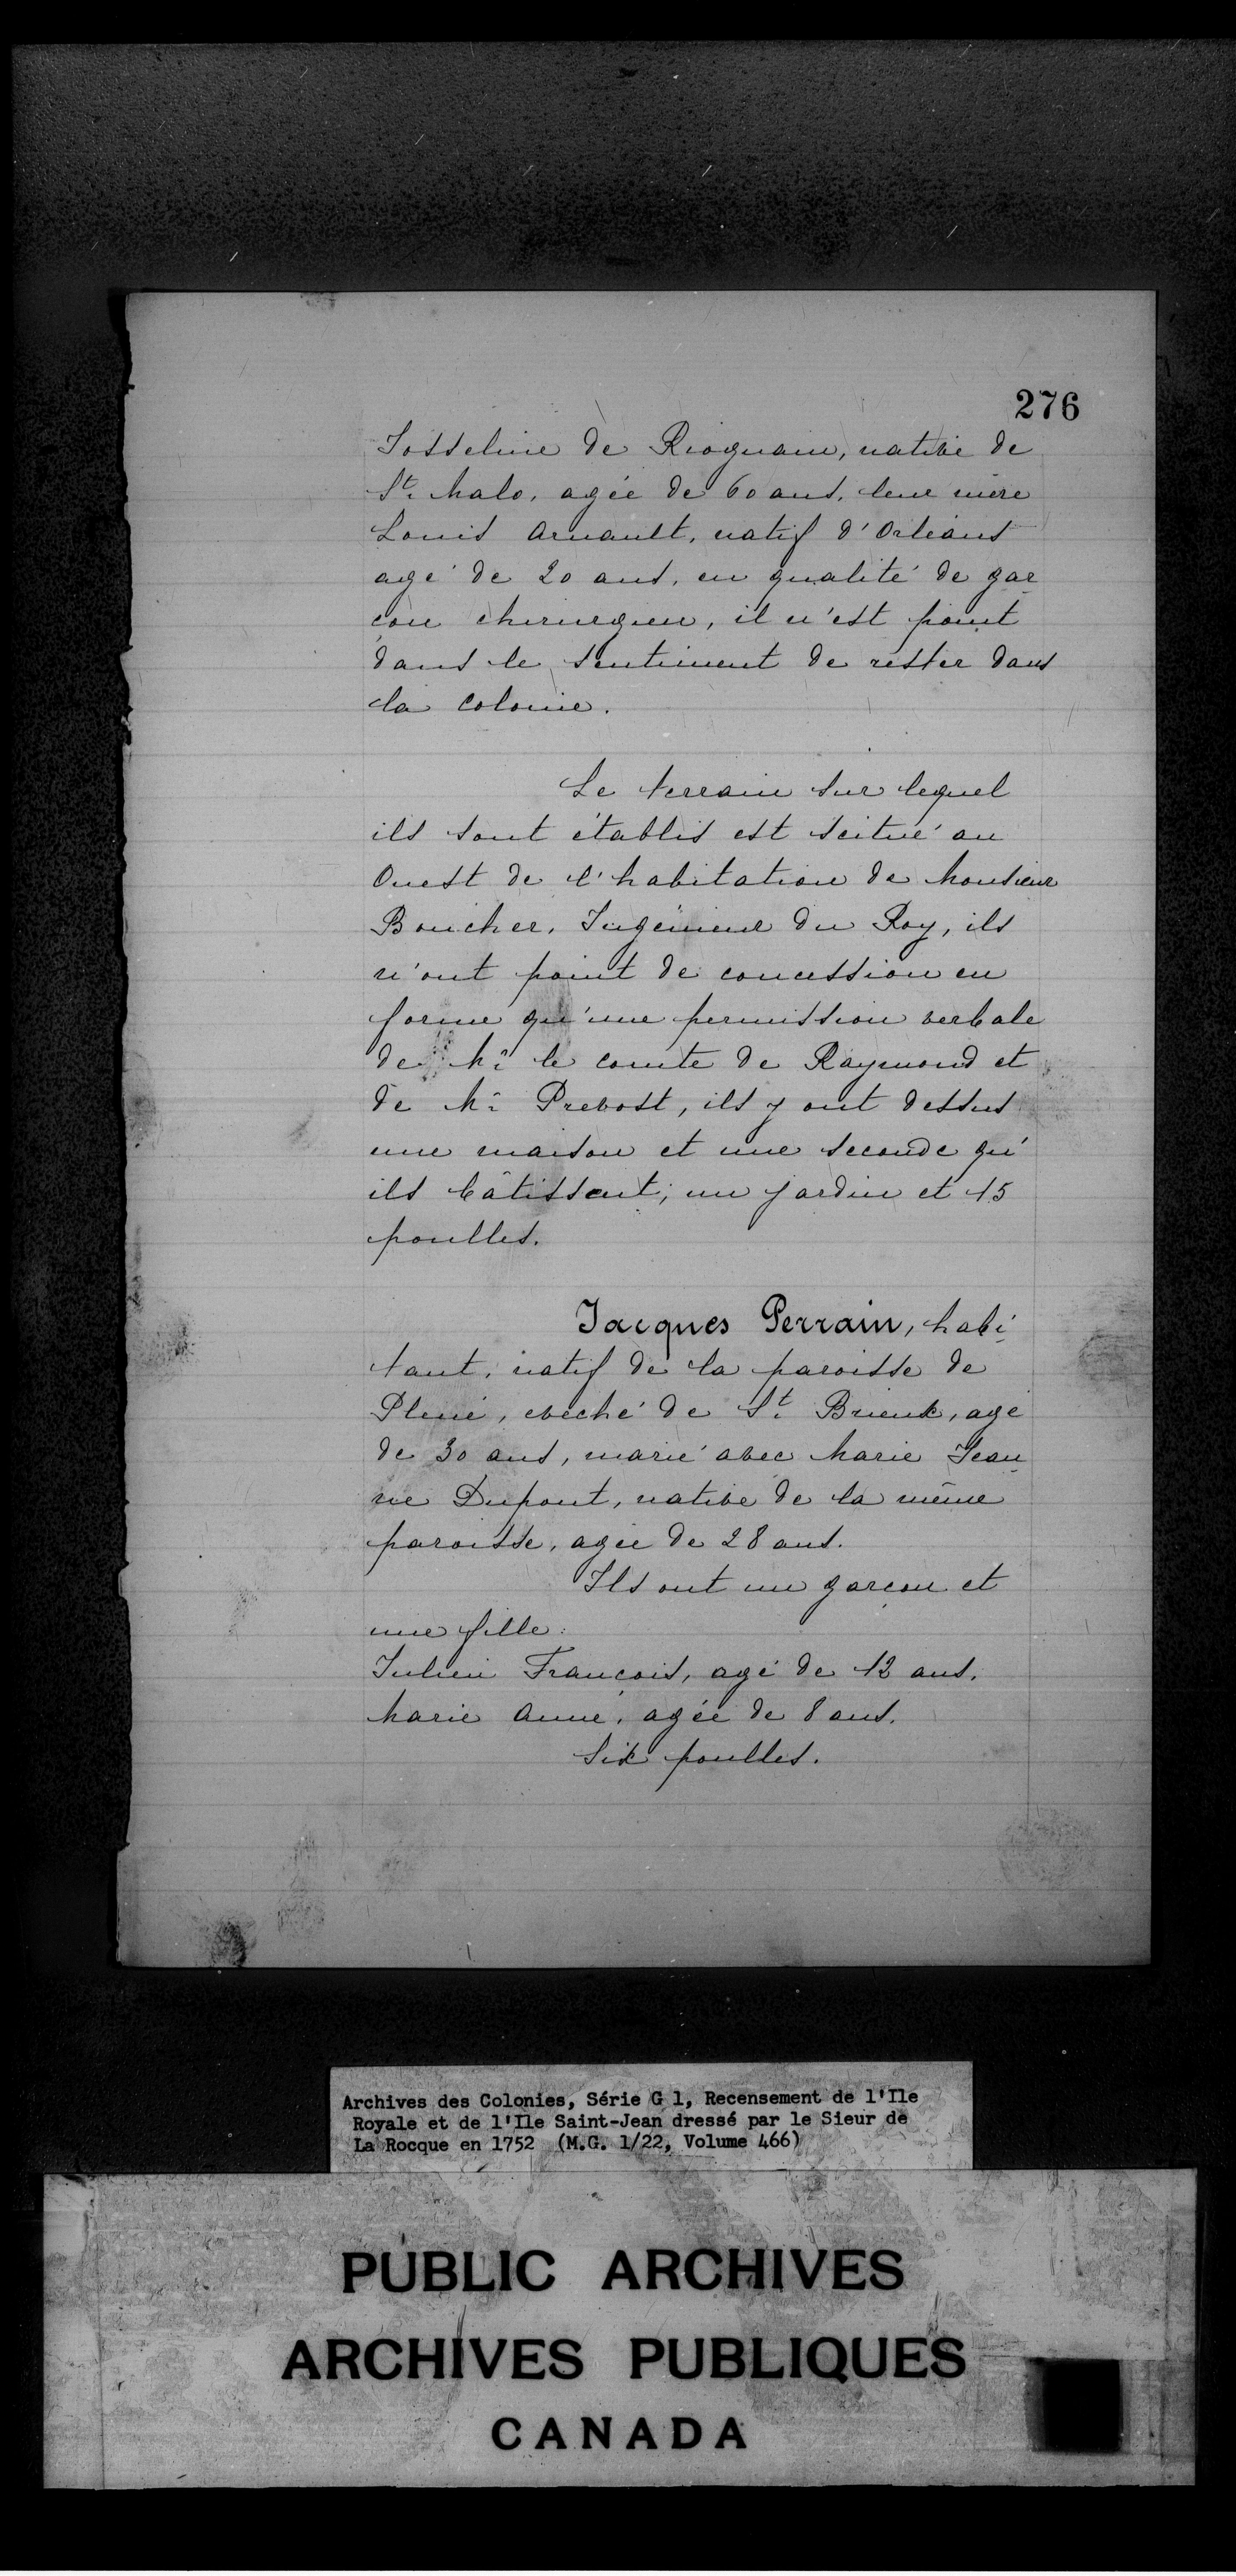 276
Josseline de Rioguain, native de
St. Malo, agée de 60 ans, leur mère
Louis Arnault, natif d'Orléans
agé de 20 ans, en qualité de gar
çon chirurgien, il n'est point
dans le sentiment de rester dans
la colonie.
Le terrain sur lequel
ils sont établis est scitué au
Ouest de l'habitation de Monsieur
Boucher, Ingénieur du Roy, ils
n'ont point de concession en
forme qu'une permission verbale
de Mr. le comte de Raymond et
de Mr. Prevost, ils y ont dessus
une maison et une seconde qu'
ils bâtissent; un jardin et 15
poulles.
Jacques Perrain, habi
tant, natif de la paroisse de
Plené, evêché de St. Brieux, agé
de 30 ans, marié avec Marie Jean
ne Dupont, native de la même
paroisse, agée de 28 ans.
Ils ont un garçon et
une fille:
Julien François, agé de 12 ans.
Marie Anne, agée de 8 ans.
Six poulles.
Archives des Colonies, Série G 1, Recensement de l'Ile
Royale et de l'Ile Saint-Jean dressé par le Sieur de
La Rocque en 1752 (M.G. 1/22, Volume 466)
PUBLIC ARCHIVES
ARCHIVES PUBLIQUES
CANADA